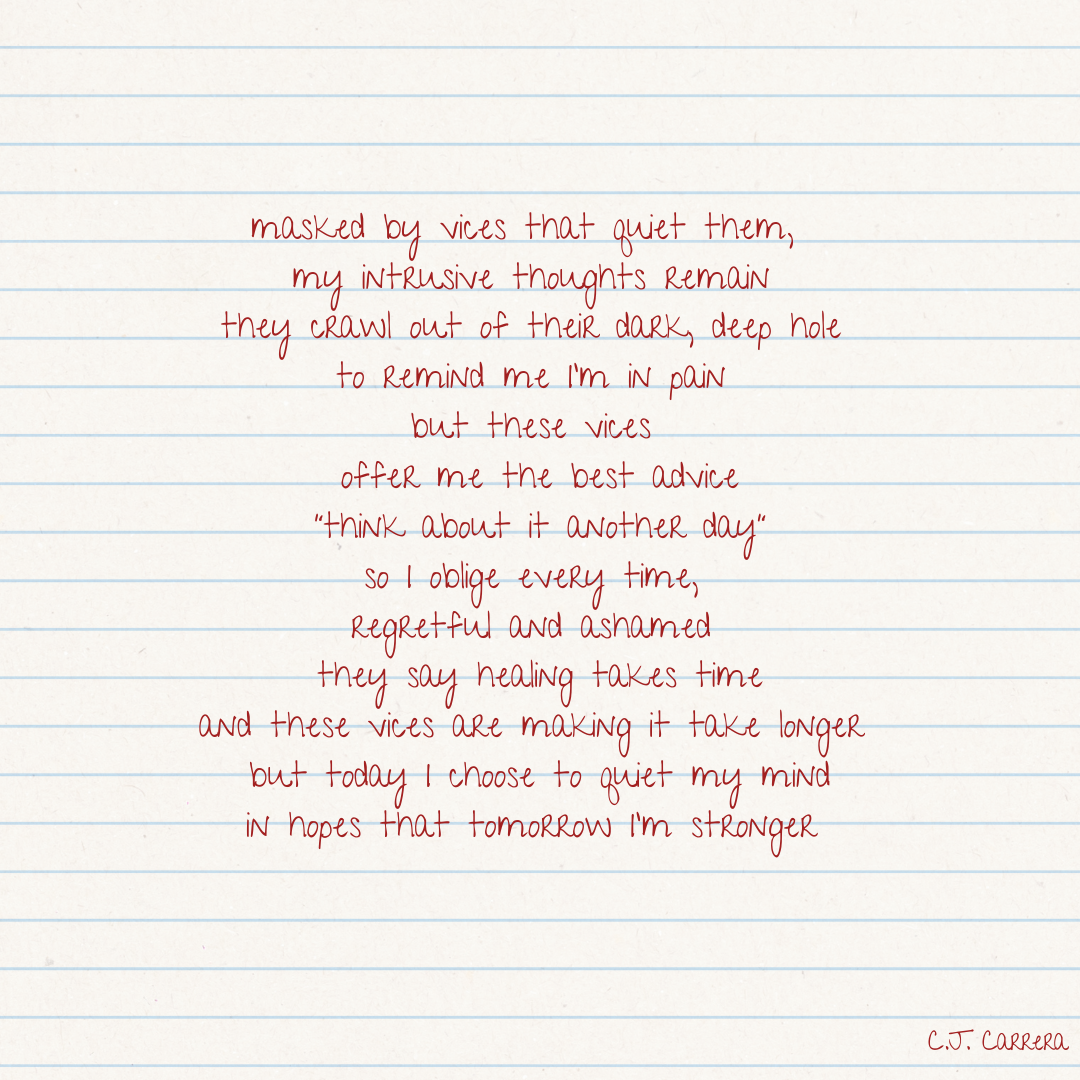 masked by vices that quiet them,
my intrusive thoughts remain
they crawl out of their dark, deep hole
to remind me I'm in pain
but these vices
offer me the best advice
"think about it another day"
so I oblige every time,
regretful and ashamed
they say healing takes time
and these vices are making it take longer
but today I choose to quiet my mind
in hopes that tomorrow I'm stronger
C.J. Carrera